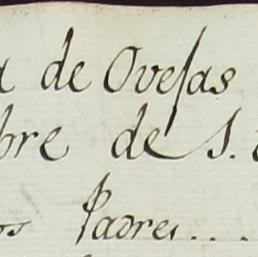 a de Ovejas
bre de S.
os Padres....